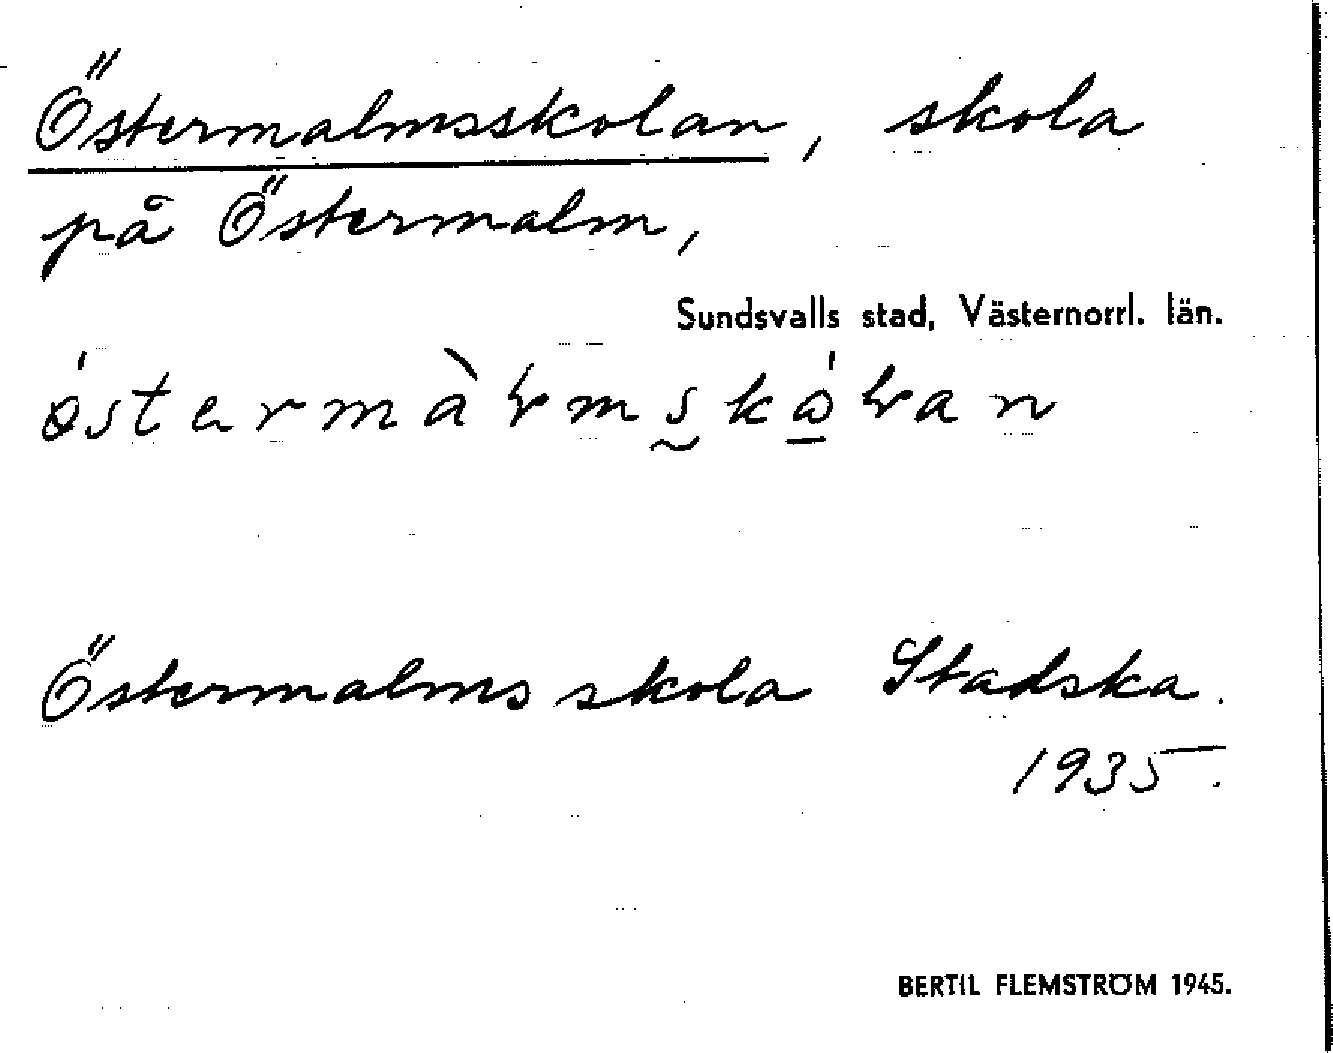 Östermalmsskolan, skola
på Östermalm,
Sundsvalls stad, Västernorrl. län.
östermàlmskó̱lan
Östermalms skola Stadska.
1935.
BERTIL FLEMSTRÖM 1945.